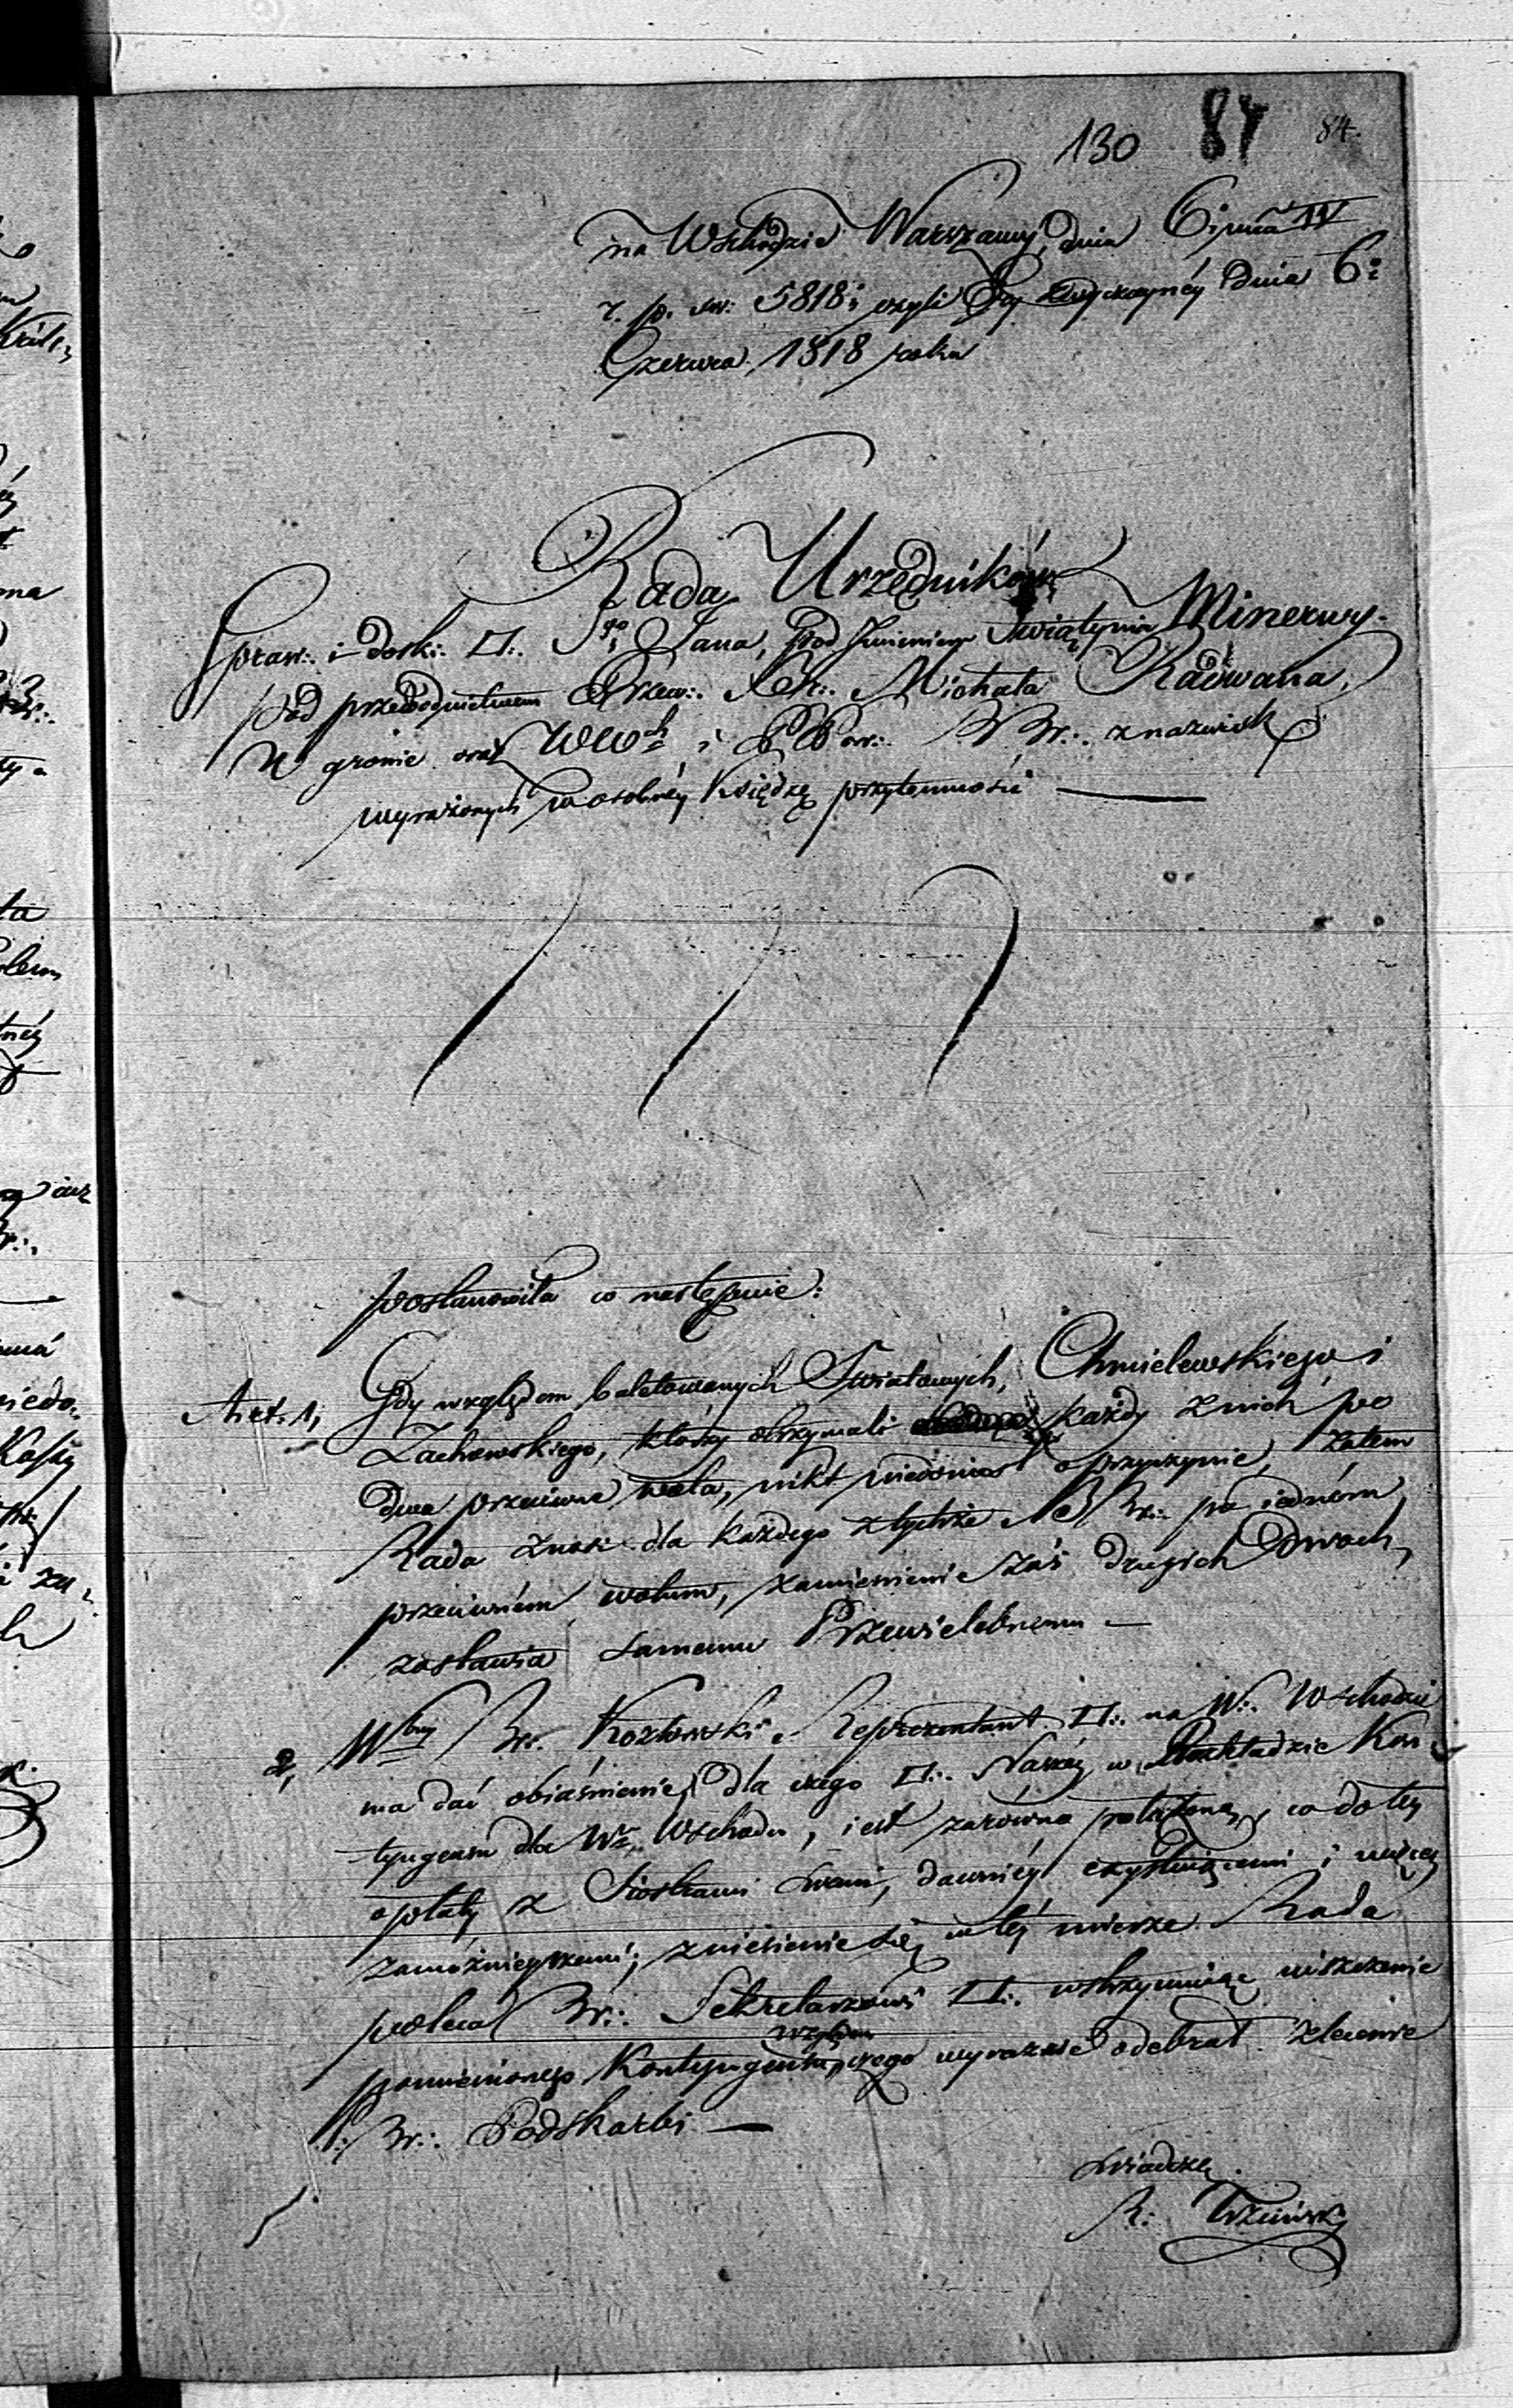 130 84 84.
na Wschodzie Warszawy, dnia 6. mca IV
r. p. św: 5818; czyli Ery zwyczaynéy dnia 6:
Czerwca, 1818 roku
Rada Urzędników
spraw:. i dosk:. □:. Sgo Jana, pod Imieniem Swiątynia Minerwy.
pod przewodnictwem Przew:. Mich:. Michała Radwana,
W gronie oraz WWch i PPow:. BBr:. z nazwisk
wyrażonych w osobnéy Księdze przytomności —
postanowiła co następuie:
Art. 1, Gdy względem baletowanych Swiatowych, Chmielewskiego i
Zachowskiego, którzy otrzymali każdy z nich po
dwa przeciwne wota, nikt niedoniosł o przyczynie, zatem
Rada znosi dla każdego z tychże BBr:. po iedném
przeciwném wotum, zamienienie zaś drugich dwóch,
zostawia samemu Przewielebnemu —
2, Wbny Br:. Kozłowski Reprezentant □:. na W:. Wschodzie
ma dać obiaśnienie, dla czego □:. Naszéy w Rozkładzie Kon-
tyngensu dla Wo Wschodu, iest zarówno położoną, co do tey
opłaty z Siostrami swemi, dawniéy exystuiącemi i więcey
zamożnieyszemi; zniesienie się w téy mierze Rada
poleca Br:. Sekretarzowi □:. wstrzymuiąc uiszczenie
pomienionego Kontyngensu, względem czego wyraźne odebrał zlecenie
Br:. Podskarbi —
Swiadczę